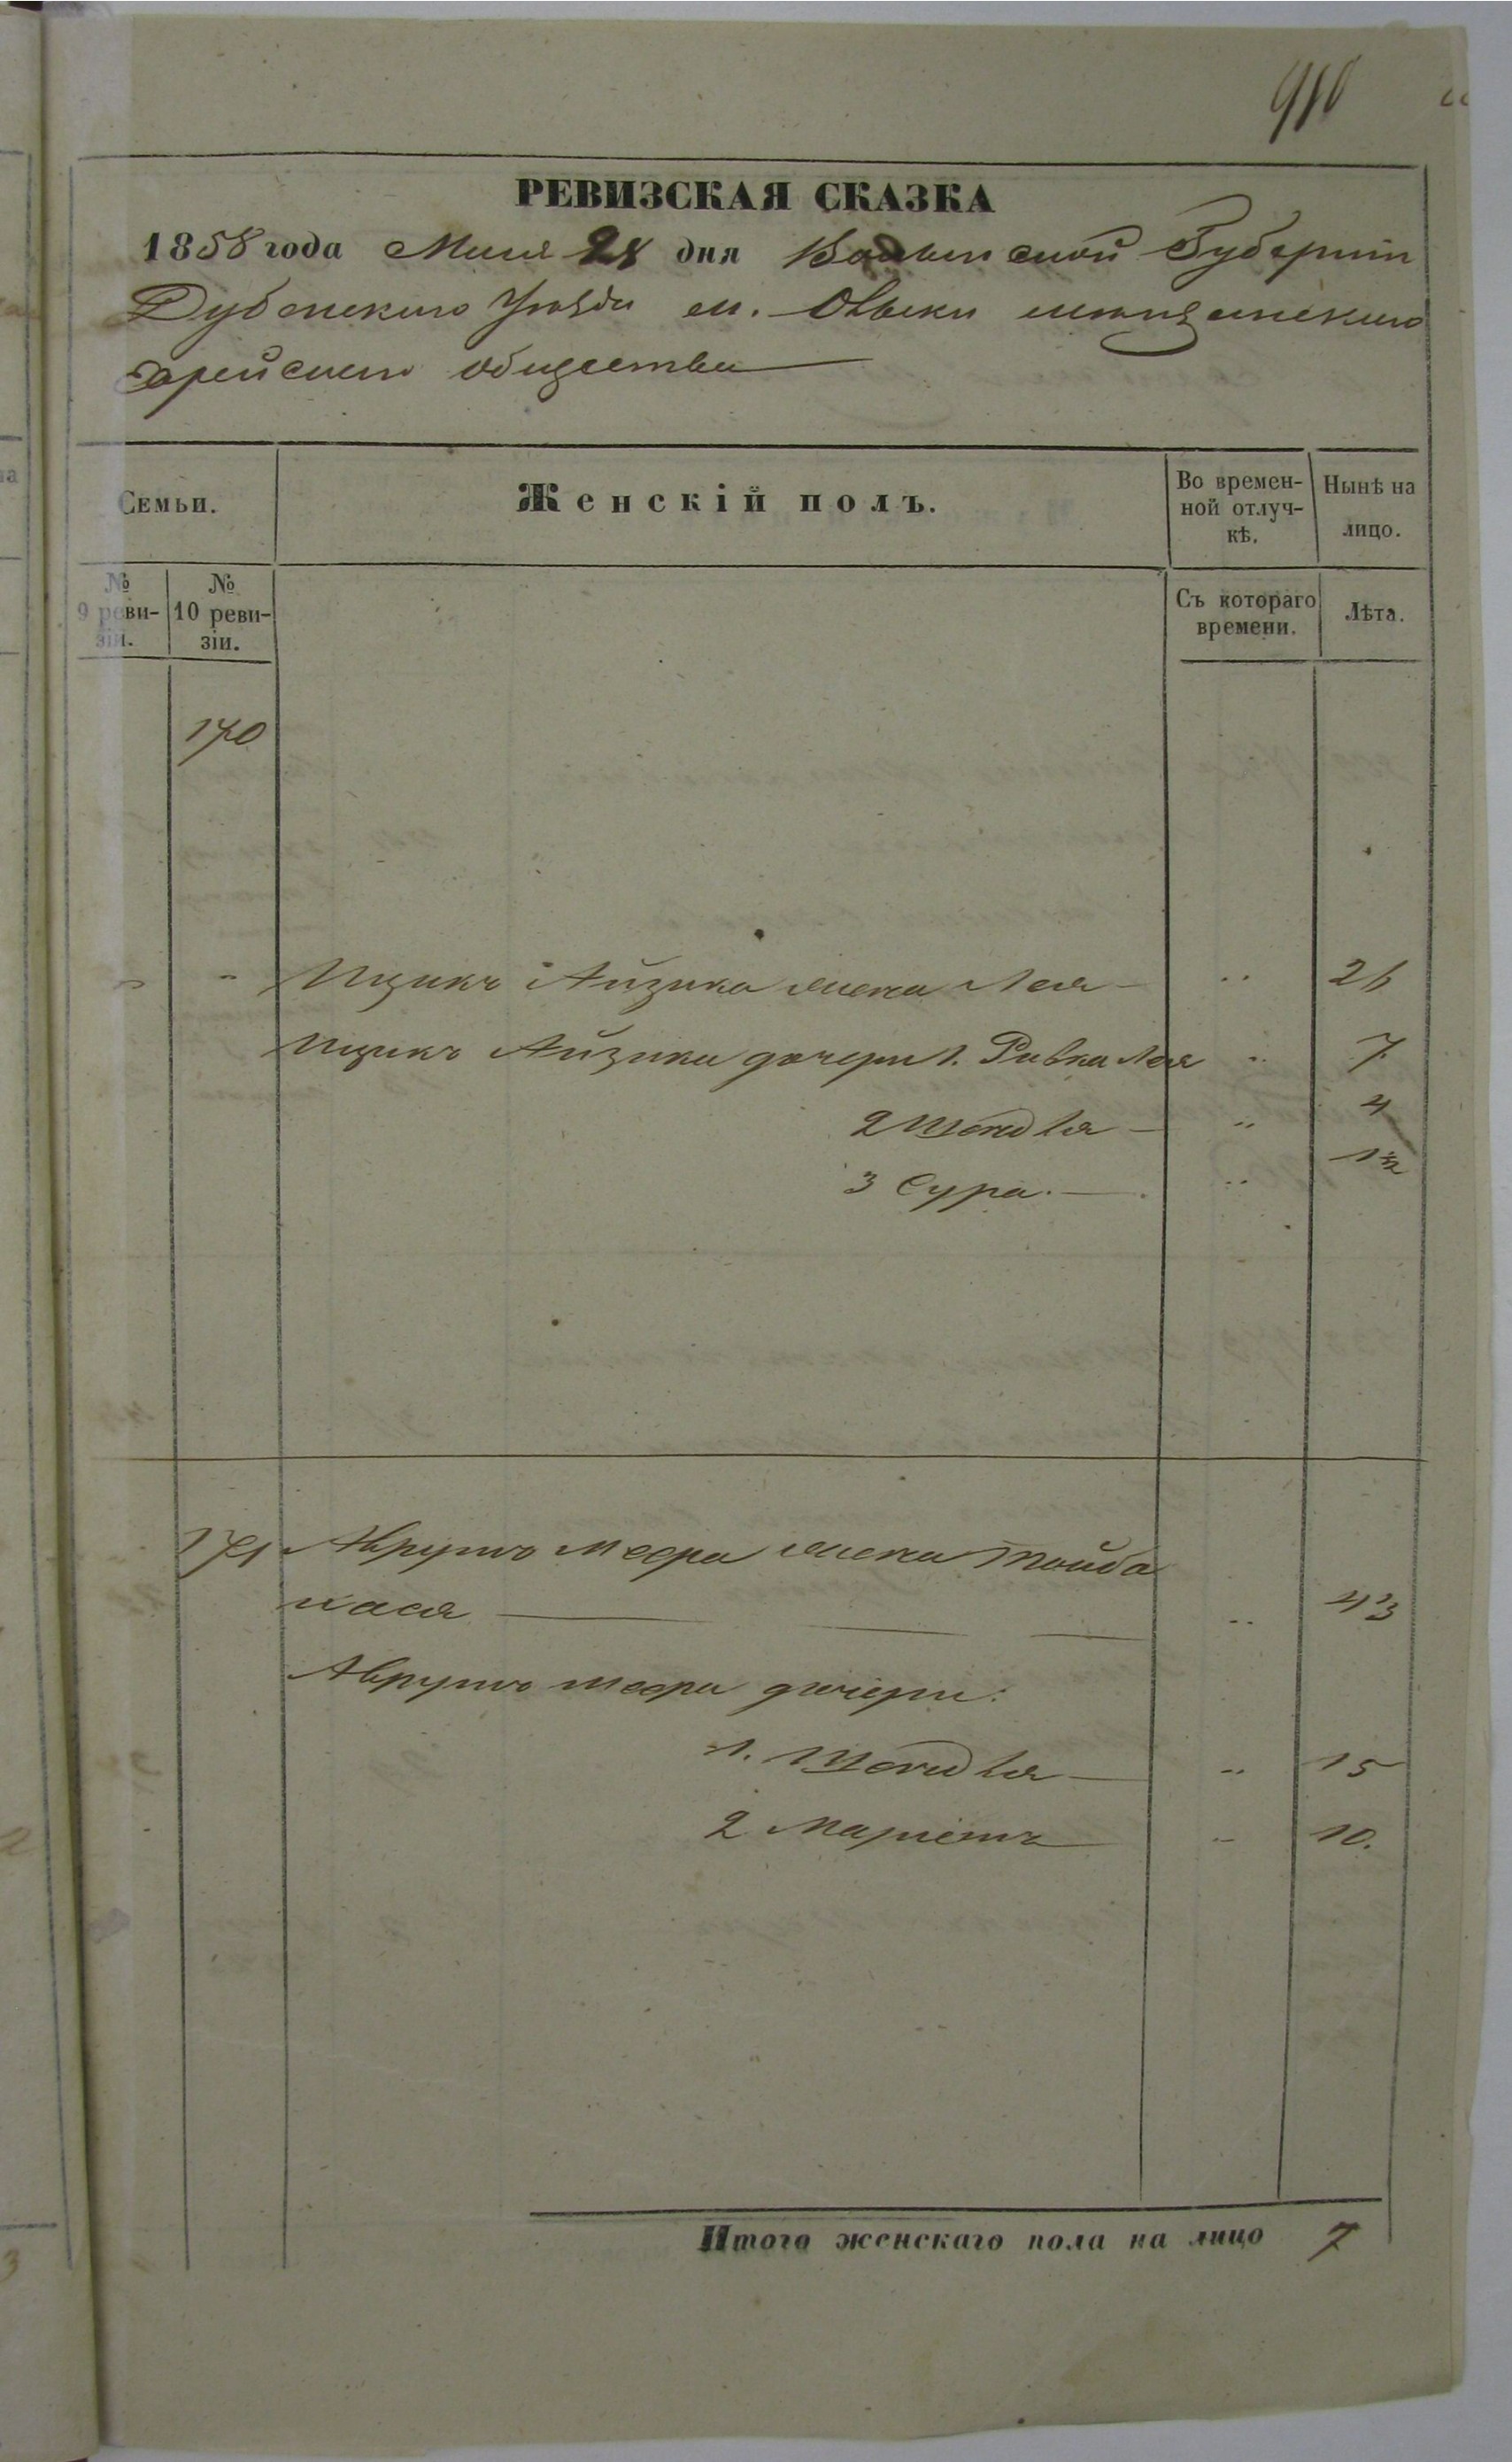 910
РЕВИЗСКАЯ СКАЗКА
1858 года Мая 28 дня Волынской Губерніи
Дубенскаго Уѣзда м. Олыки мѣщанскаго
еврейскаго общества
Семьи.
Женскій полъ.
Во времен-
ной отлуч-
кѣ.
Нынѣ на
лицо.
№
9 реви-
зіи.
№
10 реви-
зіи.
Съ котораго
времени.
Лѣта.
170
Ицикъ Айзика жена Лея 26
Ицикъ Айзика дочери 1. Ривка Лея 7
2 Шендля 4
3 Сура. 1½
171 Аврумъ Меера жена Тойба
Кася 43
Аврумъ Меера дочери:
1. Шендля 15
2 Маріемъ 10.
Итого женскаго пола на лицо 7